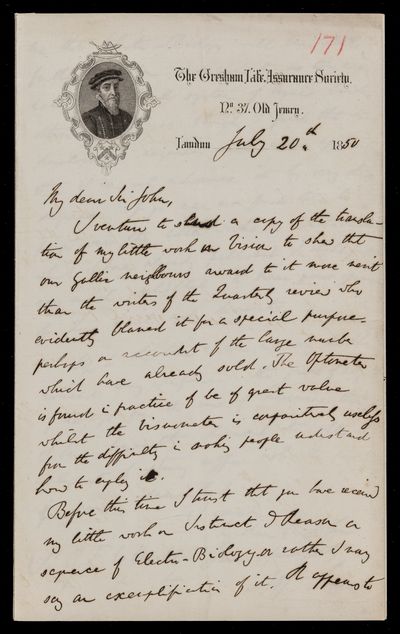 171
The Gresham Life Assurance Society,
No. 37, Old Jewry.
London July 20th 1850
My dear Sir John,
I venture to send a copy of the transla-
tion of my little work on Vision to shew that
our Gallic neighbours award to it more merit
than the writer of the Quarterly review who
evidently blamed it for a special purpose
perhaps on account of the large number
which have already sold. The Optometer
is found in practice of be of great value
whilst the Visuometer is comparatively useless
from the difficulty in making people understand
how to employ it.
Before this time I trust that you have received
my little work on Instinct & Reason or
science of Electro-Biology or rather I may
say an exemplification of it. It appears to